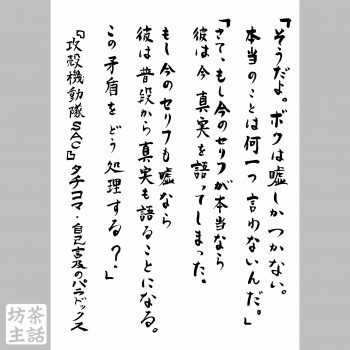 「そうだよ。ボクは嘘しかつかない。
本当のことは何一つ言わないんだ。」
「さて、もし今のセリフが本当なら
彼は今真実を語ってしまった。
もし今のセリフも嘘なら
彼は普段から真実も語ることになる。
この矛盾をどう処理する？」
『攻殻機動隊SAC』タチコマ・自己言及のパラドックス
茶話
坊主